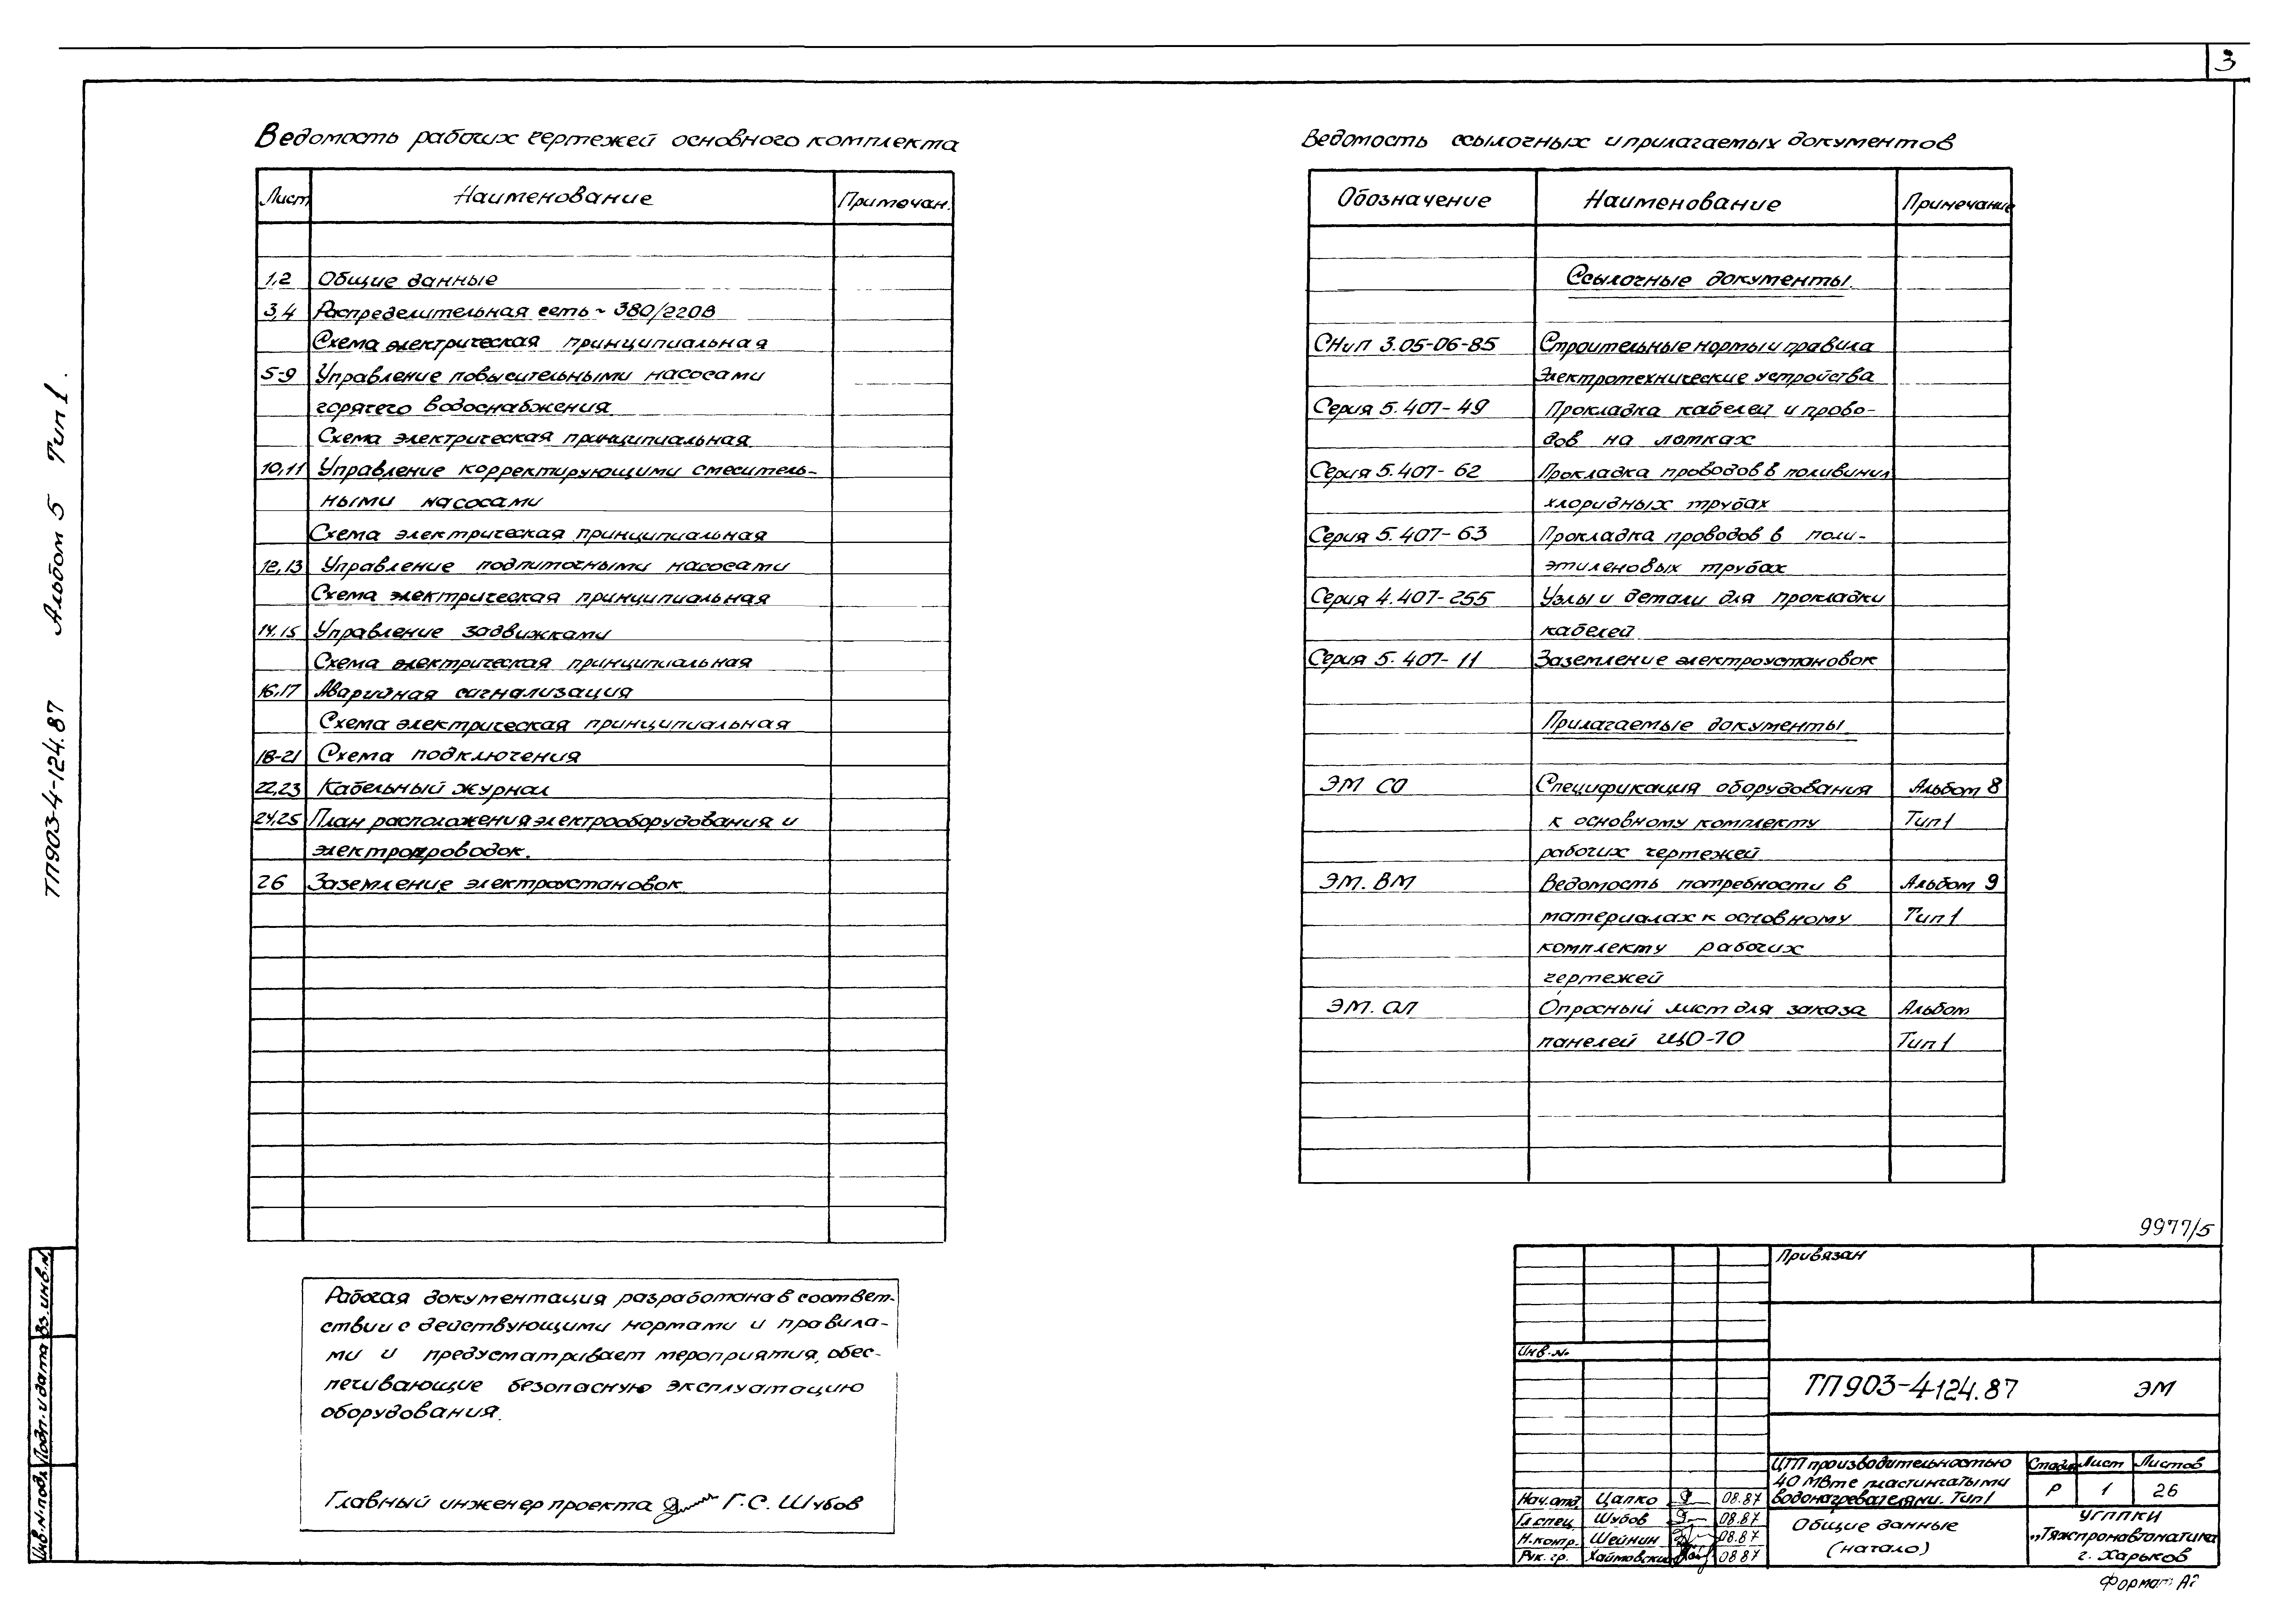 3
ТП903-4-124.87 Альбом 5 Тип 1.
Ведомость рабочих чертежей основного комплекта
Лист Наименование Примечан.
1,2 Общие данные
3,4 Распределительная сеть ~ 380/220В
Схема электрическая принципиальная
5-9 Управление повысительными насосами
горячего водоснабжения
Схема электрическая принципиальная
10,11 Управление корректирующими смеситель-
ными насосами
Схема электрическая принципиальная
12,13 Управление подпиточными насосами
Схема электрическая принципиальная
14,15 Управление задвижками
Схема электрическая принципиальная
16,17 Аварийная сигнализация
Схема электрическая принципиальная
18-21 Схема подключения
22,23 Кабельный журнал
24,25 План расположения электрооборудования и
электропроводок.
26 Заземление электроустановок
Рабочая документация разработана в соответ-
ствии с действующими нормами и правила-
ми и предусматривает мероприятия, обес-
печивающие безопасную эксплуатацию
оборудования.
Главный инженер проекта Г.С. Шубов
Ведомость ссылочных и прилагаемых документов
Обозначение Наименование Примечание
Ссылочные документы.
СНиП 3.05-06-85 Строительные нормы и правила
Электротехнические устройства
Серия 5.407-49 Прокладка кабелей и прово-
дов на лотках
Серия 5.407-62 Прокладка проводов в поливинил
хлоридных трубах
Серия 5.407-63 Прокладка проводов в поли-
этиленовых трубах
Серия 4.407-255 Узлы и детали для прокладки
кабелей
Серия 5.407-11 Заземление электроустановок
Прилагаемые документы
ЭМ СО Спецификация оборудования Альбом 8
к основному комплекту Тип 1
рабочих чертежей
ЭМ. ВМ Ведомость потребности в Альбом 9
материалах к основному Тип 1
комплекту рабочих
чертежей
ЭМ. ОЛ Опросный лист для заказа Альбом
панелей ЩО-70 Тип 1
9977/5
Привязан
Инв.№
ТП903-4-124.87 ЭМ
ЦТП производительностью
40 МВт с пластинчатыми
водонагревателями. Тип 1
Стадия Лист Листов
Р 1 26
Нач.отд. Цапко 08.87
Гл.спец. Шубов 08.87
Н.контр. Шейнин 08.87
Рук. гр. Хаймовский 08.87
Общие данные
(начало)
УГППКИ
„Тяжпромавтоматика
г. Харьков
Формат А2
Инв.№подл. Подп. и дата Вз.инв.№